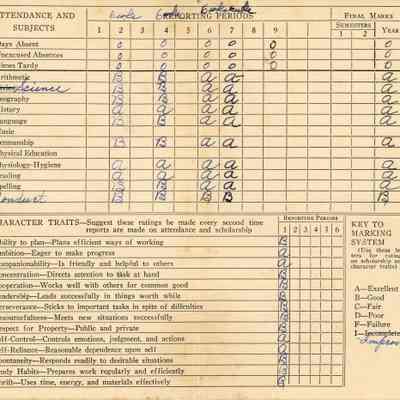 TTENDANCE AND SUBJECTS REPORTING PERIODS FINAL MARKS
SEMESTERS
1 2 3 4 5 6 7 8 9 1 2 YEAR
Days Absent 0 0 0 0 0 0
nexcused Absences 0 0 0 0 0 0
imes Tardy 0 0 0 0 0 0
rithmetic B B a a a
Science
eography B B a a a
istory a a a a a
anguage B B a a a
usic
enmanship B B a a a
hysical Education
hysiology-Hygiene a a a a a
eading a a a a a
pelling B B a a a
Conduct B B B B B
HARACTER TRAITS—Suggest these ratings be made every second time reports are made on attendance and scholarship
REPORTING PERIODS
1 2 3 4 5 6
bility to plan—Plans efficient ways of working B
mbition—Eager to make progress a
ompanionability—Is friendly and helpful to others a
oncentration—Directs attention to task at hand B
ooperation—Works well with others for common good B
eadership—Leads successfully in things worth while B
erseverance—Sticks to important tasks in spite of difficulties B
esourcefulness—Meets new situations successfully B
espect for Property—Public and private B
elf-Control—Controls emotions, judgment, and actions a
elf-Reliance—Reasonable dependence upon self a
pontaneity—Responds readily to desirable situations B
udy Habits—Prepares work regularly and efficiently B
hrift—Uses time, energy, and materials effectively B
KEY TO
MARKING
SYSTEM
(Use these
ters for rating
on scholarship
character traits)
A—Excellent
B—Good
C—Fair
D—Poor
F—Failure
I—Incomplete